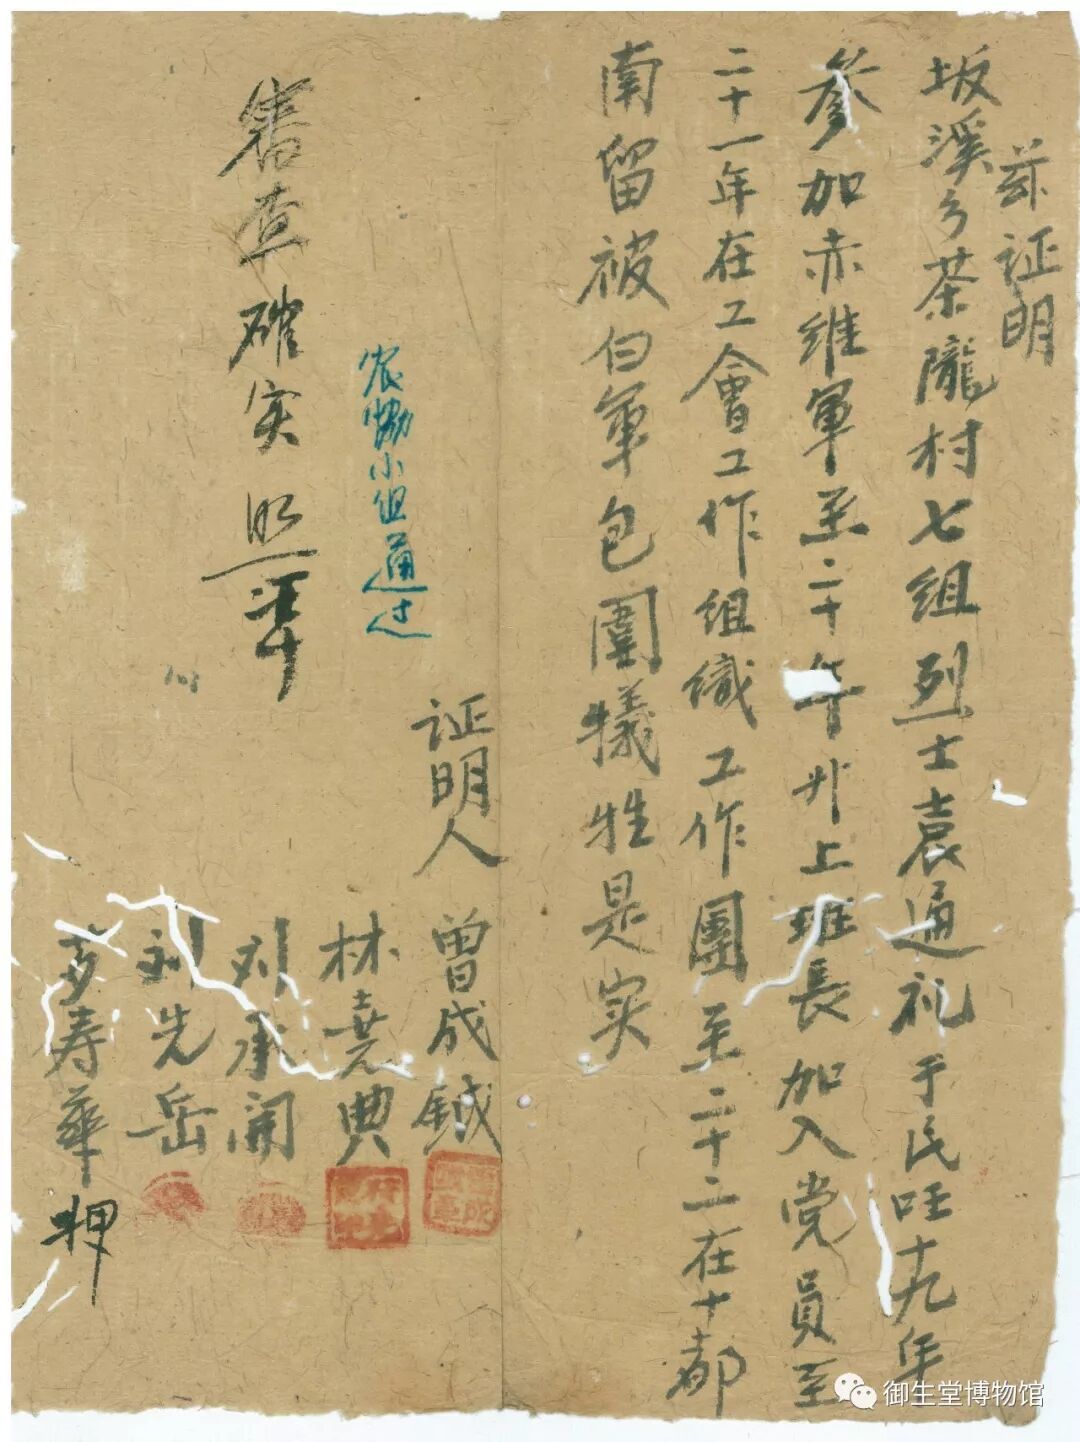 兹证明
坂溪乡茶陇村七组烈士袁通礼于民国十九年
参加赤维军至二十年升上班長加入党员至
二十一年在工會工作组織工作團至二十二在十都
南留被白軍包圍犧牲是实
证明人
曾成鉞
林尭典
刘承開
刘先岳
寿華押
农协小组通过
審查確实
御生堂博物馆